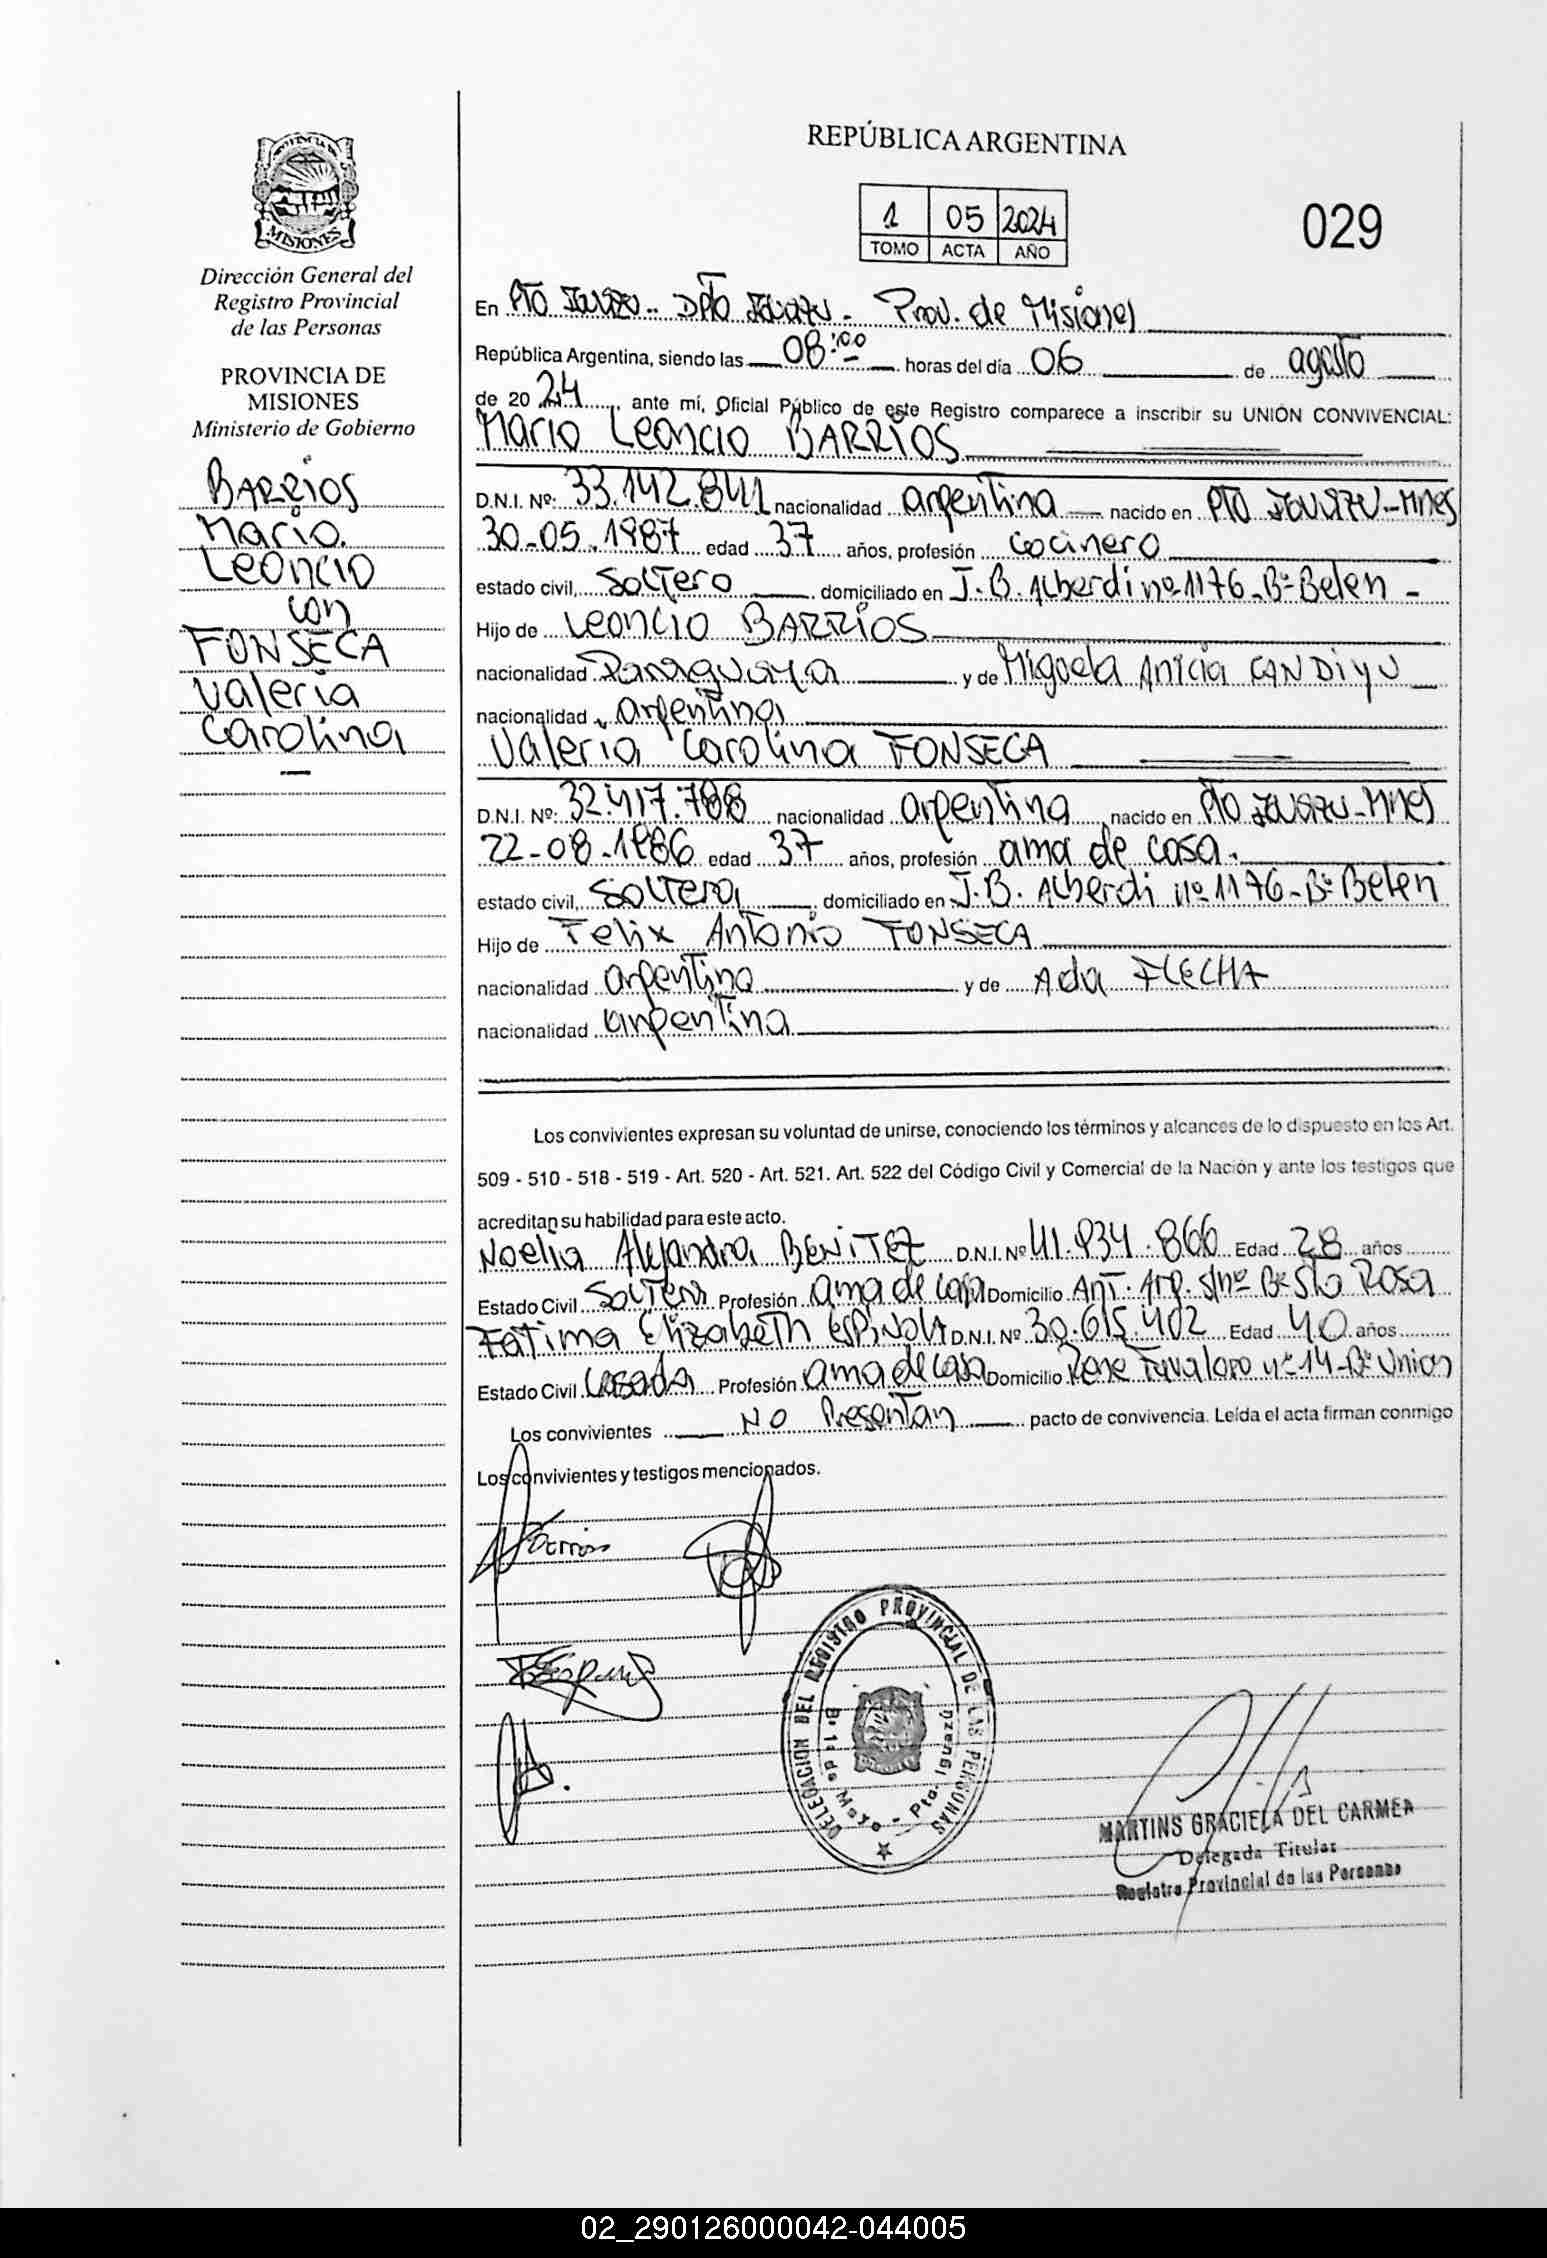 REPÚBLICA ARGENTINA
1 05 2024
TOMO ACTA AÑO
029
MISIONES
Dirección General del
Registro Provincial
de las Personas
PROVINCIA DE
MISIONES
Ministerio de Gobierno
BARRIOS
Mario
Leoncio
con
FONSECA
Valeria
Carolina
En PTO IGUAZU - DPTO IGUAZU - Prov. de Misiones
República Argentina, siendo las 08:00 horas del día 06 de agosto
de 2024, ante mí, Oficial Público de este Registro comparece a inscribir su UNIÓN CONVIVENCIAL:
Mario Leoncio BARRIOS
D.N.I. Nº: 33.142.841 nacionalidad argentina nacido en PTO IGUAZU-MNES
30-05-1987 edad 37 años, profesión cocinero
estado civil, Soltero domiciliado en J.B. Alberdi nº 1176 - Bº Belen -
Hijo de Leoncio BARRIOS
nacionalidad Paraguaya y de Miguela Anicia CANDIYU
nacionalidad argentina
Valeria Carolina FONSECA
D.N.I. Nº: 32.417.788 nacionalidad argentina nacido en PTO IGUAZU-MNES
22-08-1986 edad 37 años, profesión ama de casa.
estado civil, Soltera domiciliado en J.B. Alberdi nº 1176 - Bº Belen
Hijo de Felix Antonio FONSECA
nacionalidad argentina y de Ada FLECHA
nacionalidad argentina
Los convivientes expresan su voluntad de unirse, conociendo los términos y alcances de lo dispuesto en los Art.
509 - 510 - 518 - 519 - Art. 520 - Art. 521. Art. 522 del Código Civil y Comercial de la Nación y ante los testigos que
acreditan su habilidad para este acto.
Noelia Alejandra BENITEZ D.N.I. Nº 41.934.866 Edad 28 años
Estado Civil Soltera Profesión ama de casa Domicilio Ant. Arg. s/nº Bº Sta Rosa
Fatima Elizabeth ESPINOLA D.N.I. Nº 30.615.402 Edad 40 años
Estado Civil Casada Profesión ama de casa Domicilio Rene Favaloro nº 14 - Bº Union
Los convivientes No Presentan pacto de convivencia. Leída el acta firman conmigo
Los convivientes y testigos mencionados.
DELEGACION DEL REGISTRO PROVINCIAL DE LAS PERSONAS
Bº 1º de Mayo - Pto. Iguazú
MARTINS GRACIELA DEL CARMEN
Delegada Titular
Registro Provincial de las Personas
02_290126000042-044005